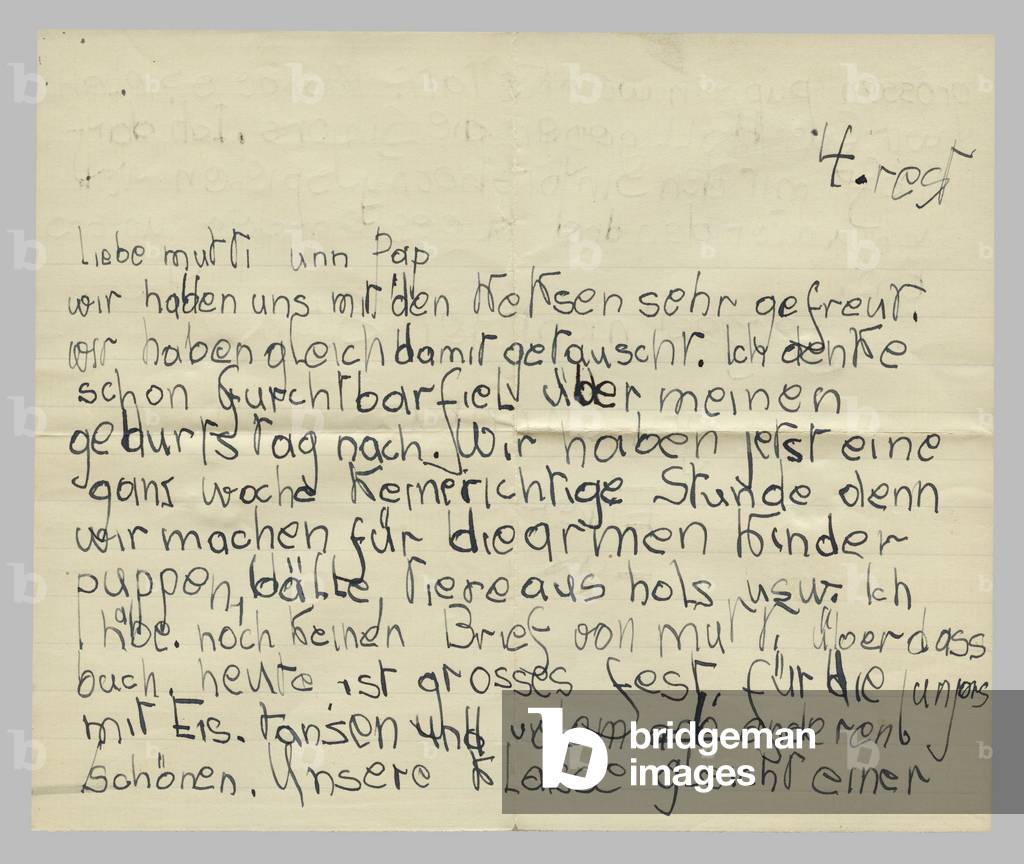 4. reg
Liebe mutti unn Pap
wir haben uns mit den Keksen sehr gefreut.
wir haben gleich damit getauscht. Ich denke
schon furchtbar fiel über meinen
geburtstag nach. Wir haben jetst eine
gans woche keine richtige Stunde denn
wir machen für die armen Kinder
puppen, bälle, Tiere aus hols usw. Ich
habe noch keinen Brief von mutti über dass
buch. heute ist grosses fest, für die jungs
mit Eis. tansen und anderen
schönen. Unsere Klasse gleicht einer
bridgeman
images